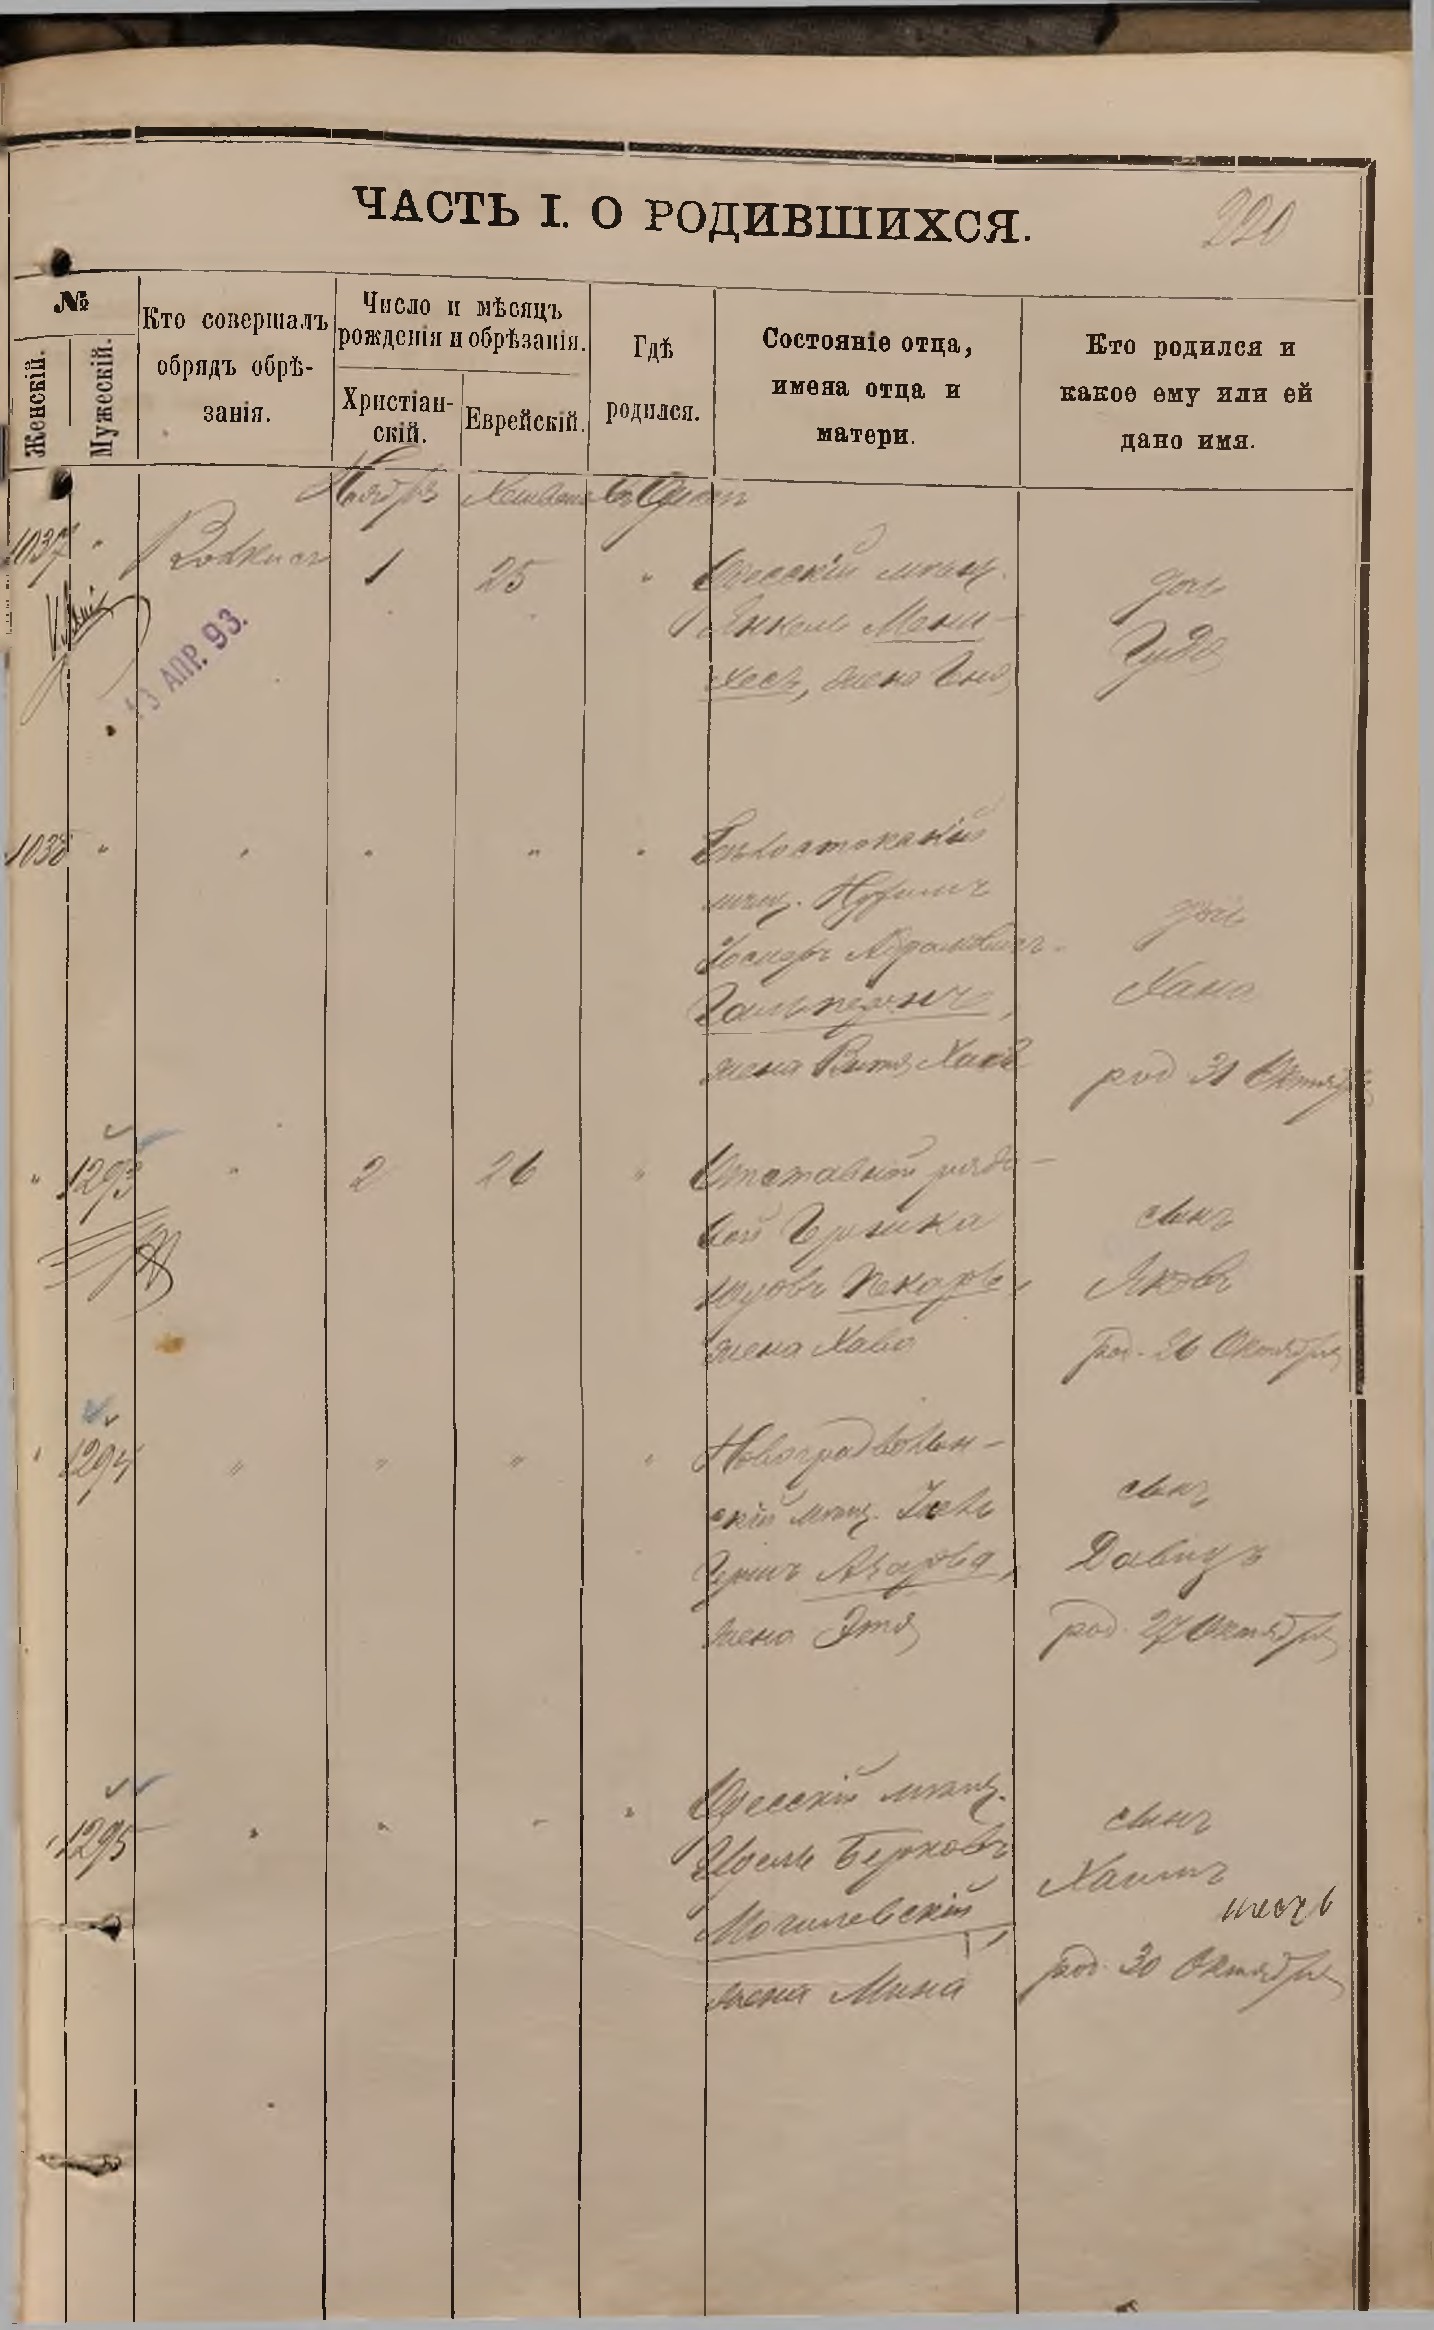 ЧАСТЬ I. О РОДИВШИХСЯ.
220
№
Женскій.
Мужескій.
Кто совершалъ
обрядъ обрѣ-
занія.
Число и мѣсяцъ
рожденія и обрѣзанія.
Христіан-
скій.
Еврейскій.
Гдѣ
родился.
Состояніе отца,
имена отца и
матери.
Кто родился и
какое ему или ей
дано имя.
Ноябрь
въ Одессѣ
1037 "
1 25 "
Одесскій мѣщ.
Янкель Мени-
хесъ, жена
дочь
13 АПР. 93.
1038 " " " " "
Бѣлостокскій
мѣщ.
Іосифъ Абрамовичъ
Гальперинъ,
жена Хая
дочь
Хана
род 31 Октября
" 1293 " 2 26 "
Отставной рядо-
вой Гершка
Пекарь,
жена Хава
сынъ
Яковъ
род. 26 Октября
" 1294 " " " "
Новоградволын-
скій мѣщ. Іось
Гершъ Азарова,
жена Этя
сынъ
Давидъ
род. 27 Октября
" 1295 " " " "
Одесскій мѣщ.
Идель Берковъ
Могилевскій,
жена Мина
сынъ
Хаимъ
род 30 Октября